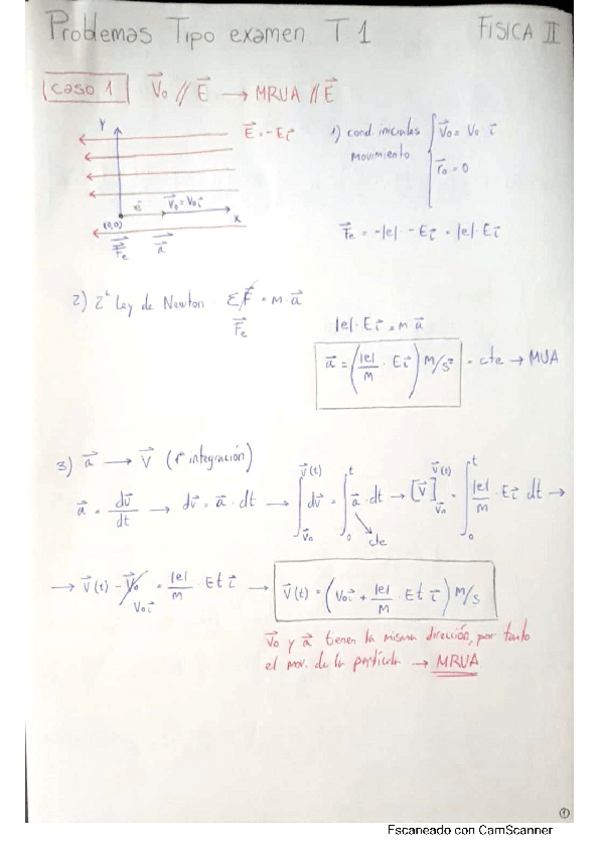 Problemas Tipo examen T 1 FISICA II
caso 1 V⃗₀ // E⃗ → MRUA // E⃗
Y
E⃗ = -E i⃗
e⁻ V⃗₀ = V₀ i⃗
(0,0) X
F⃗e a⃗
1) cond. iniciales movimiento { V⃗₀ = V₀ i⃗
r⃗₀ = 0
F⃗e = -|e| · -E i⃗ = |e| · E i⃗
2) 2ª Ley de Newton ΣF⃗ = m · a⃗
F⃗e
|e| · E i⃗ = m a⃗
a⃗ = (|e|/m · E i⃗) m/s² = cte → MUA
3) a⃗ → V⃗ (1ª integración)
a⃗ = dv⃗/dt → dv⃗ = a⃗ · dt → ∫_{V⃗₀}^{V⃗(t)} dv⃗ = ∫_0^t a⃗ · dt → [V⃗]_{V⃗₀}^{V⃗(t)} = ∫_0^t |e|/m · E i⃗ dt →
cte
→ V⃗(t) - V⃗₀ = |e|/m · E t i⃗ → V⃗(t) = (V₀ i⃗ + |e|/m · E t i⃗) m/s
V₀ i⃗
V⃗₀ y a⃗ tienen la misma dirección, por tanto
el mov. de la partícula → MRUA
1
Escaneado con CamScanner